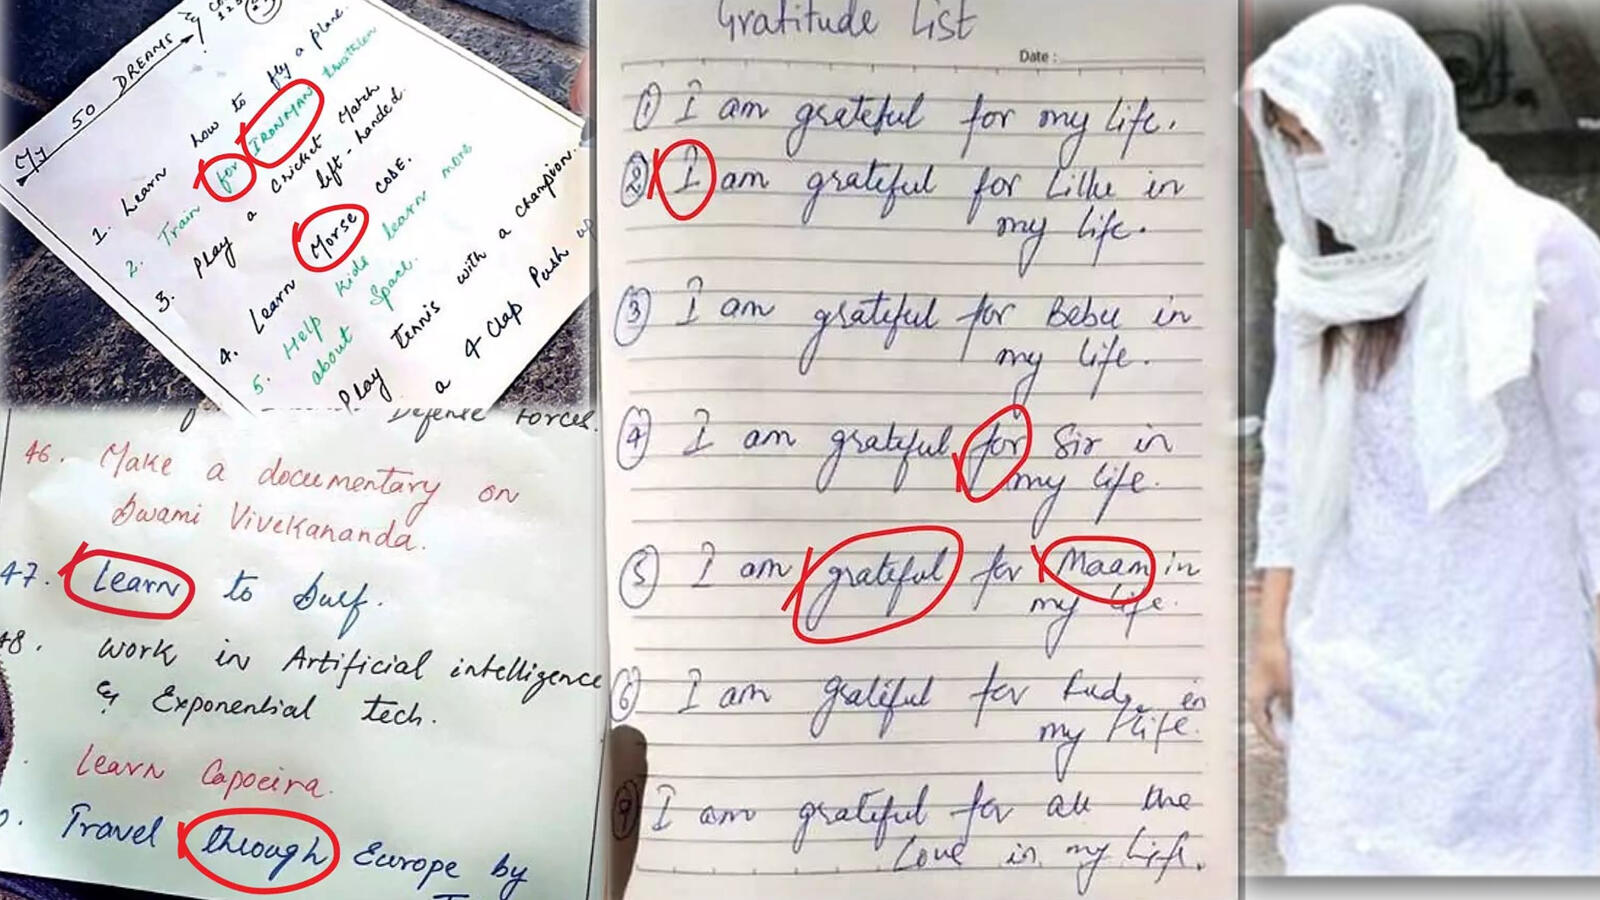 My 50 DREAMS
1. Learn how to fly a plane.
2. Train for IRONMAN triathlon
3. Play a cricket Match
left-handed.
4. Learn Morse CODE.
5. Help kids learn more
about Space.
Play tennis with a champion.
a 4 Clap Push up
Defense Forces.
46. Make a documentary on
Swami Vivekananda.
47. Learn to Surf.
48. Work in Artificial intelligence
& Exponential tech.
Learn Capoeira.
Travel through Europe by
Gratitude List
Date :
① I am grateful for my life.
② I am grateful for Lillu in
my life.
③ I am grateful for Bebu in
my life.
④ I am grateful for Sir in
my life.
⑤ I am grateful for Maam in
my life.
⑥ I am grateful for in
my life.
I am grateful for all the
Love in my life.